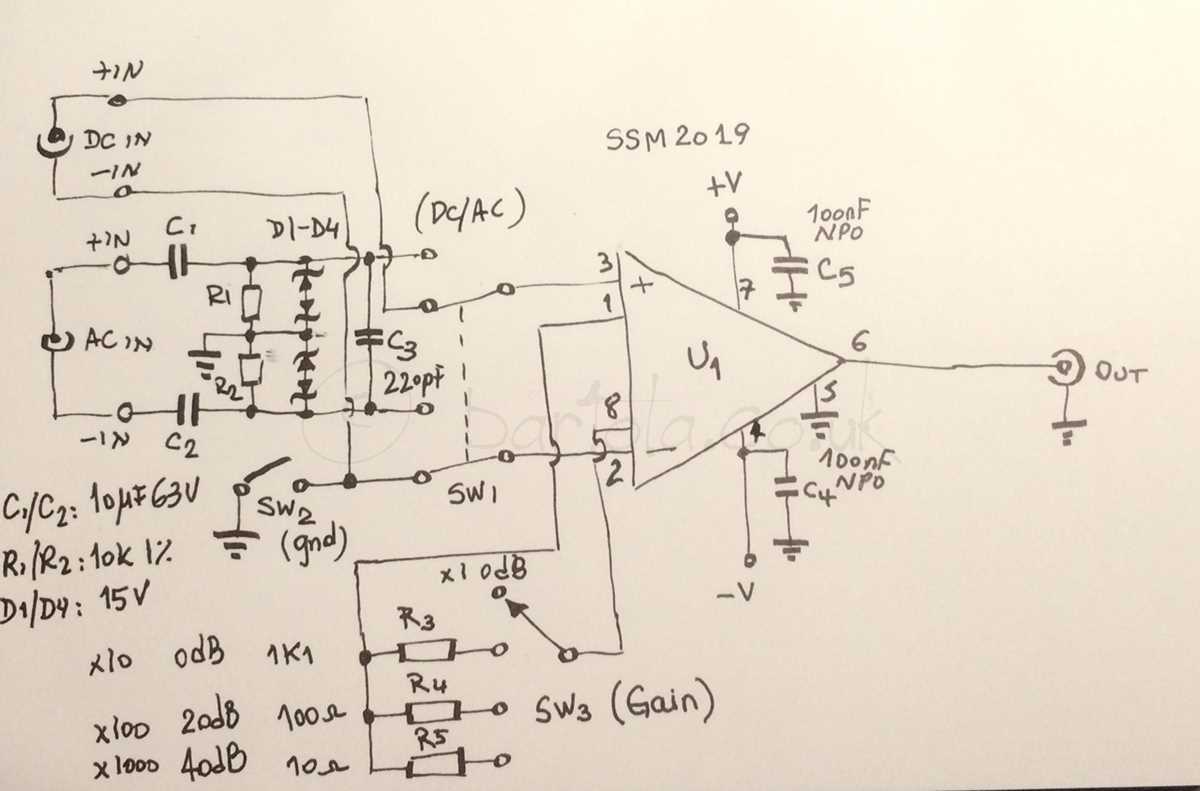 +IN
DC IN
-IN
SSM2019
+V
100nF
NPO
C5
(DC/AC)
C1
D1-D4
+IN
R1
AC IN
R2
C3
220pF
-IN
C2
3
+
1
7
U1
6
OUT
5
8
2
-
4
100nF
NPO
C4
-V
bartola.co.uk
SW1
SW2
(gnd)
C1/C2: 10µF 63V
R1/R2: 10K 1%
D1/D4: 15V
x1 0dB
x10 0dB 1K1
R3
x100 20dB 100Ω
R4
SW3 (Gain)
x1000 40dB 10Ω
R5